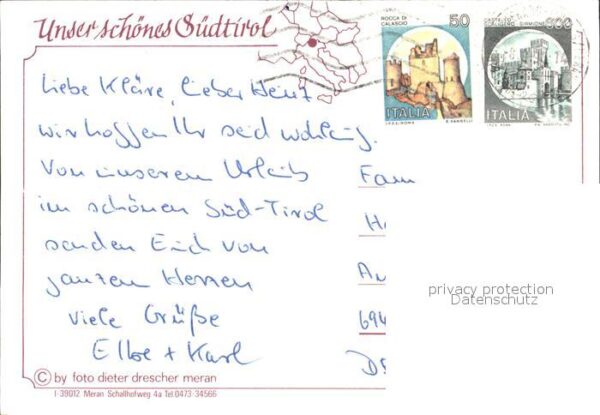 Unser schönes Südtirol
ROCCA DI
CALASCIO
50
ITALIA
I.P.Z.S. ROMA
E. VANGELLI
CASTELLO
SCALIGERO SIRMIONE
ITALIA
I.P.Z.S. ROMA
Liebe Kläre, lieber Heinz
wir hoffen Ihr seid wohlauf.
Von unserem Urlaub
im schönen Süd-Tirol
senden Euch von
ganzem Herzen
viele Grüße
+ Karl
Fam
H
A
694
D
privacy protection
Datenschutz
© by foto dieter drescher meran
I-39012 Meran Schallhofweg 4a Tel.0473-34566